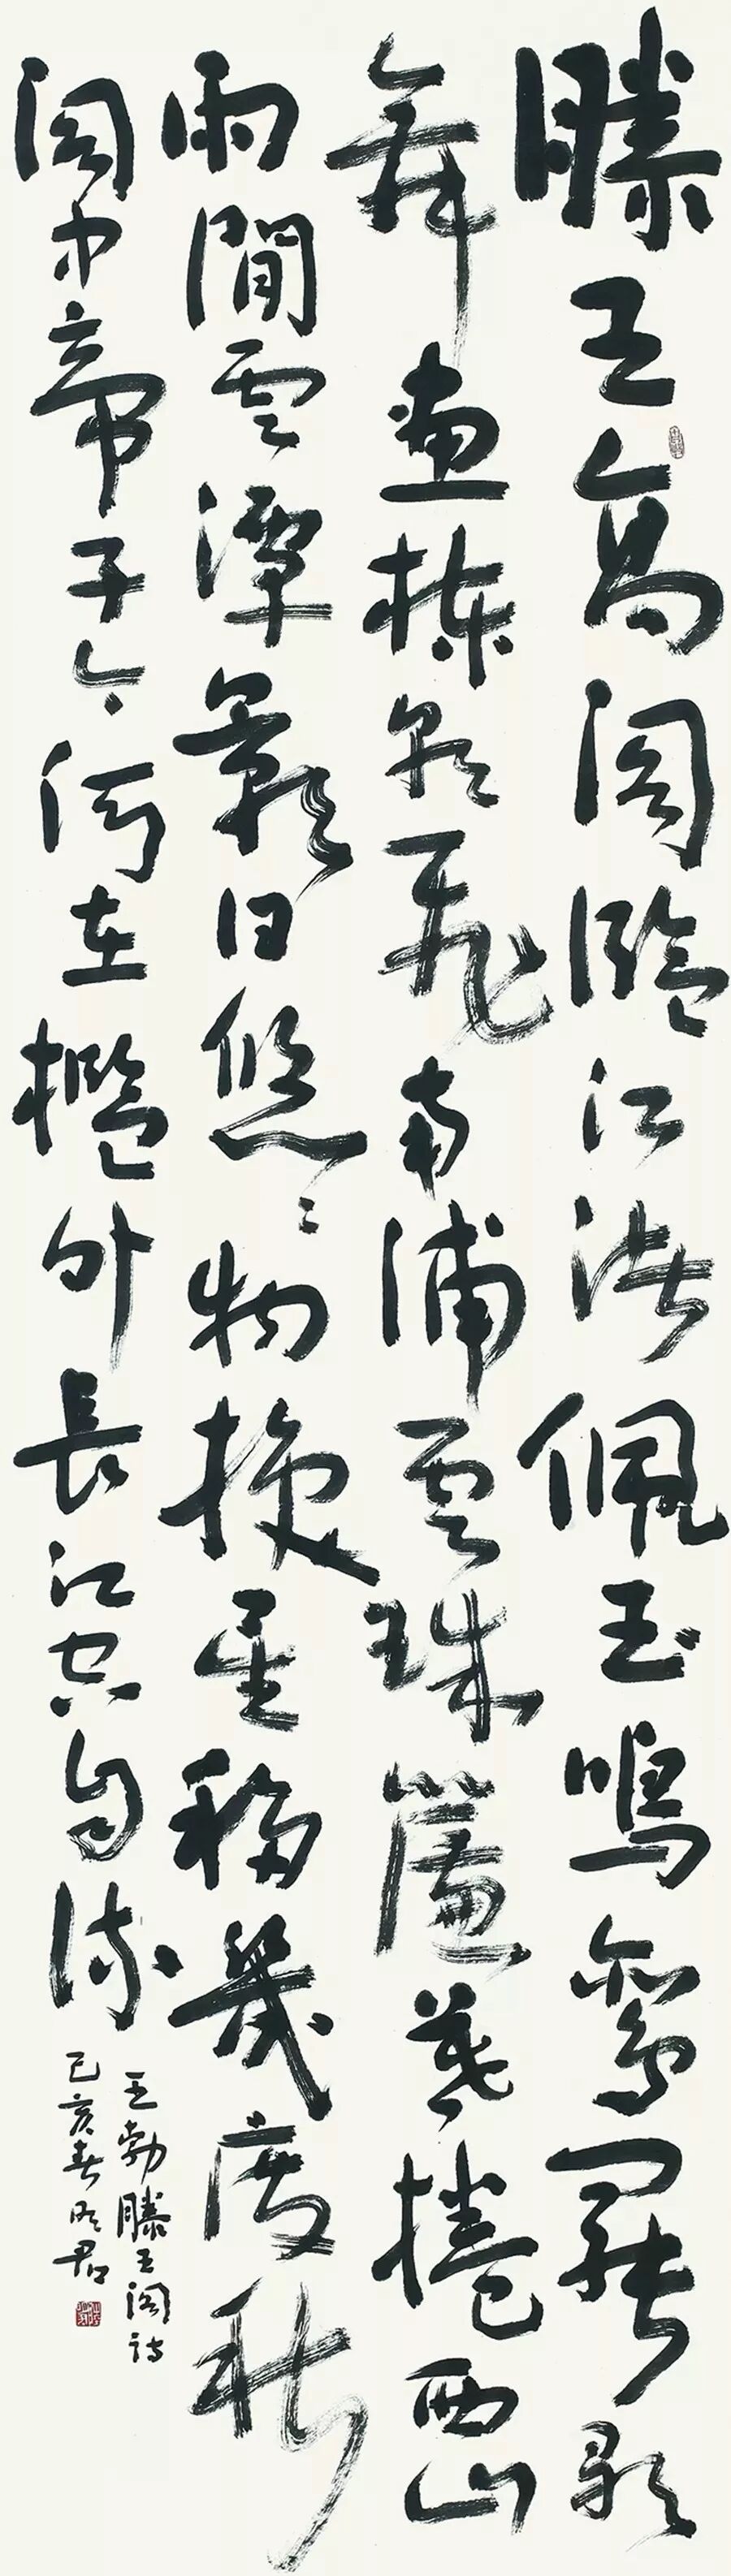 滕王高閣臨江渚佩玉鳴鸞罷歌
舞畫棟朝飛南浦雲珠簾暮捲西山
雨閒雲潭影日悠〻物換星移幾度秋
閣中帝子今何在檻外長江空自流
王勃滕王閣詩
己亥春君